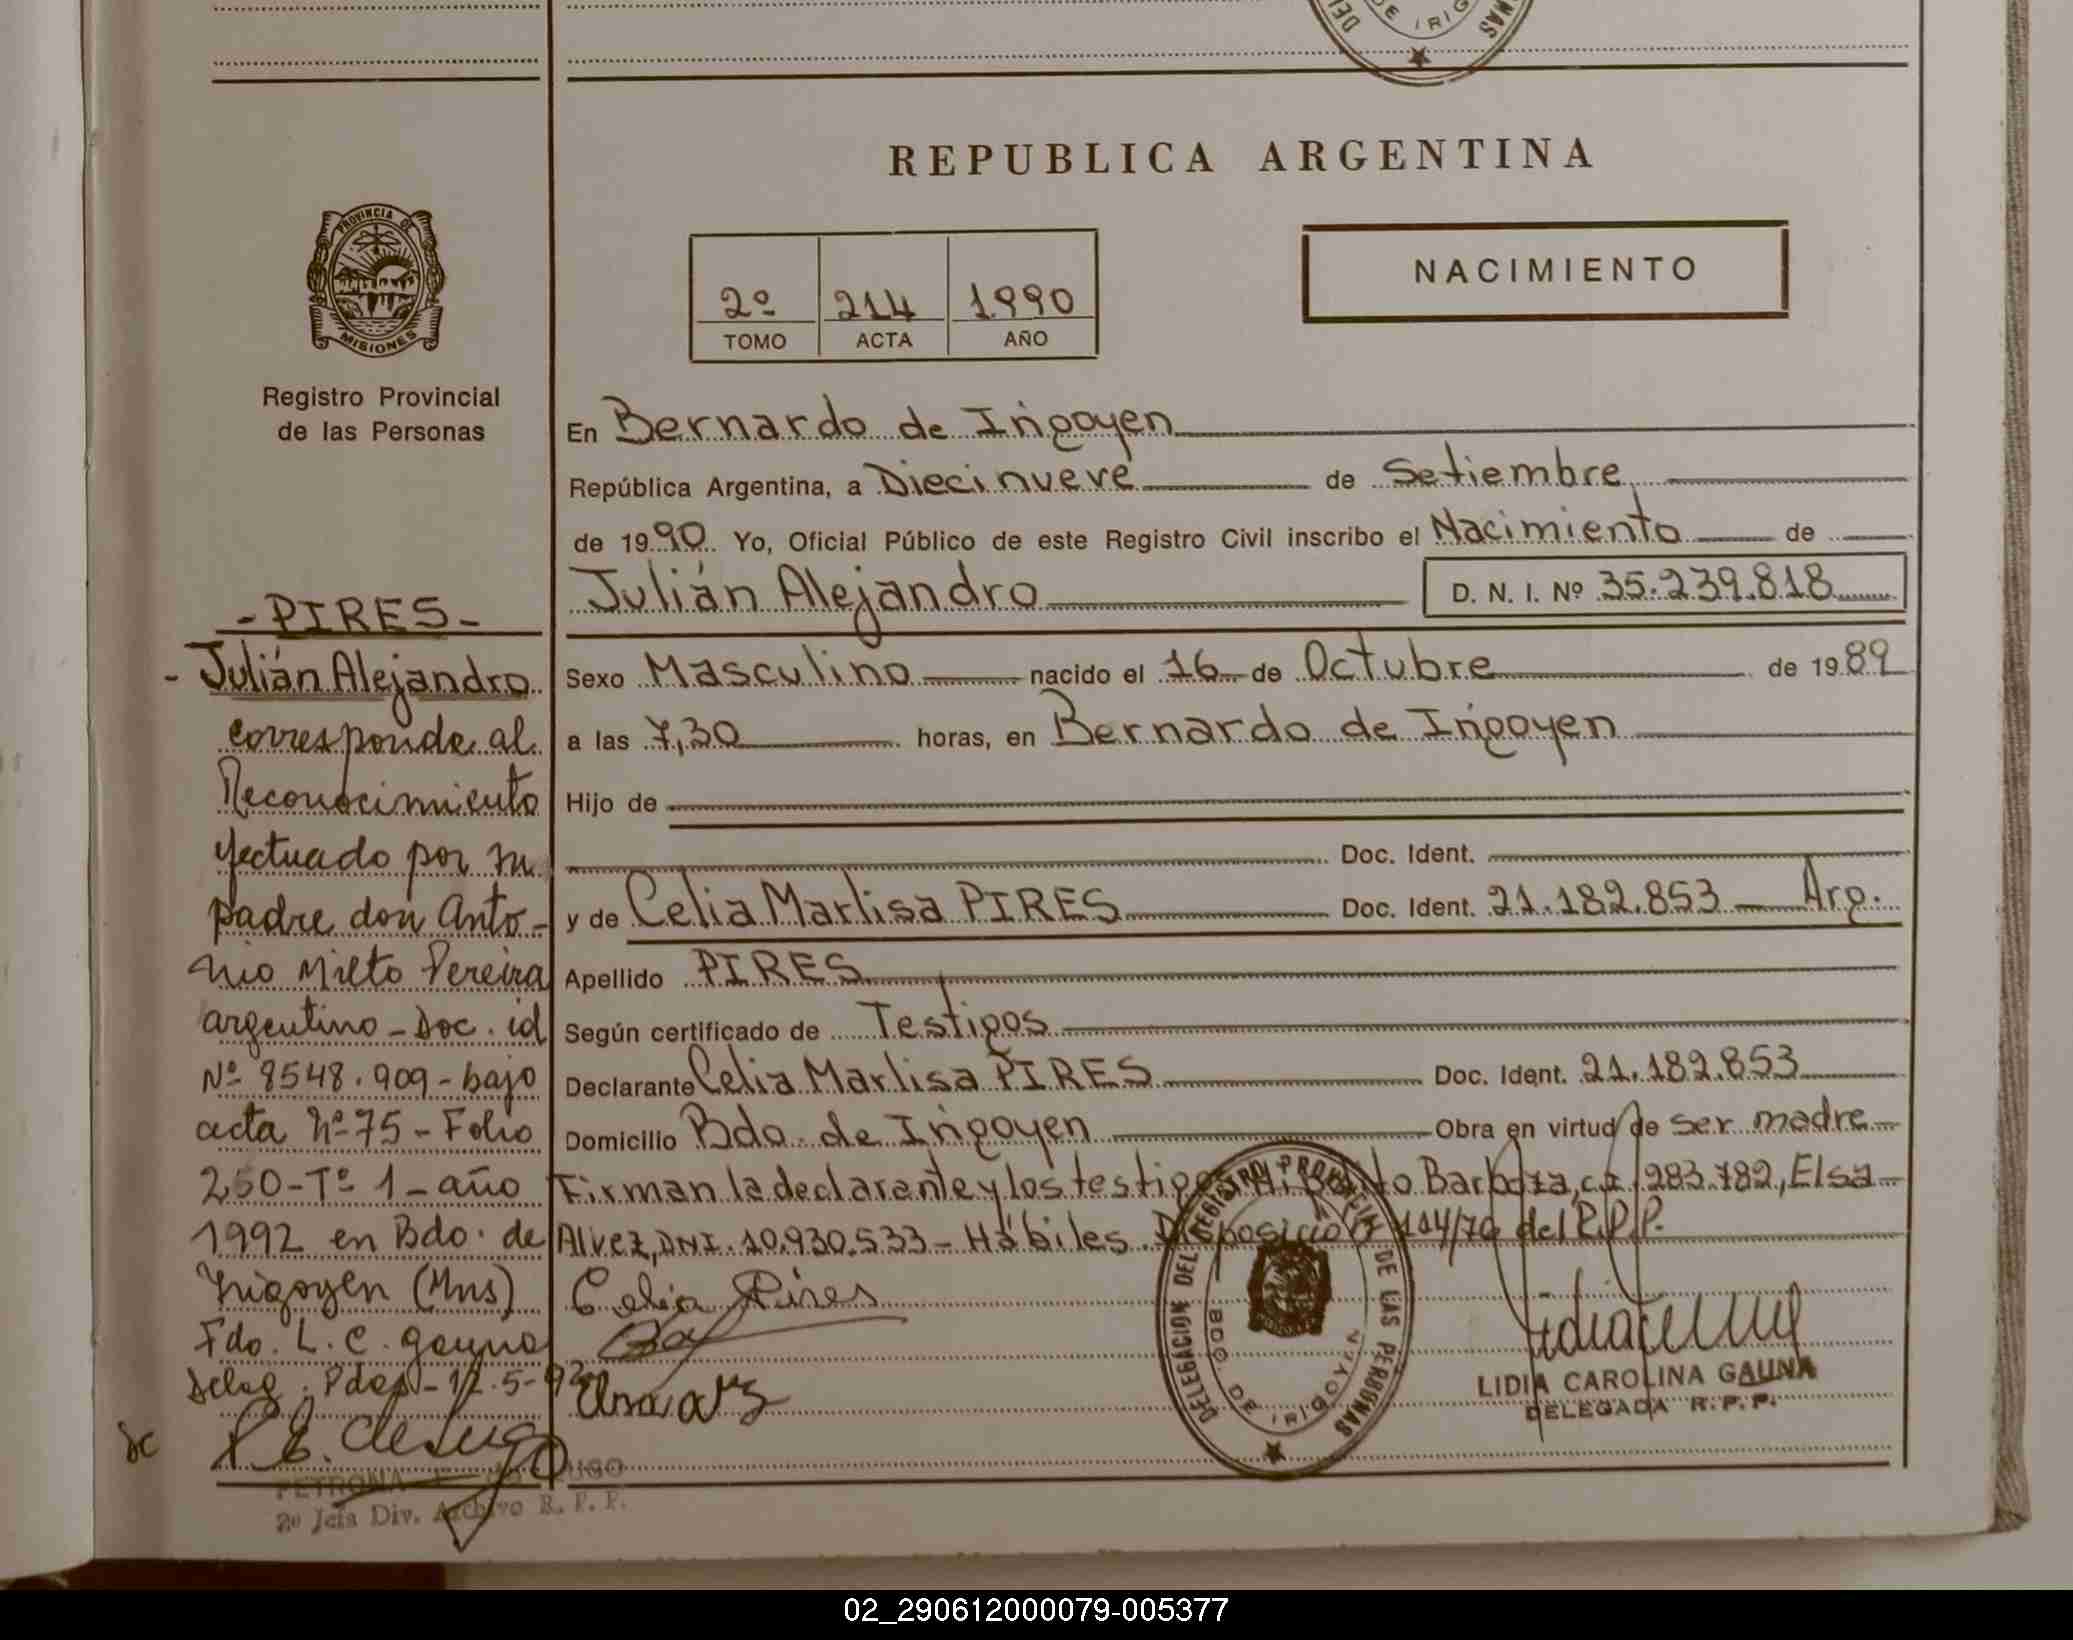 DE IRIG
REPUBLICA ARGENTINA
PROVINCIA DE
MISIONES
NACIMIENTO
2º 214 1.990
TOMO ACTA AÑO
Registro Provincial
de las Personas
En Bernardo de Irigoyen
República Argentina, a Diecinueve de Setiembre
de 1990 Yo, Oficial Público de este Registro Civil inscribo el Nacimiento de
Julián Alejandro D. N. I. Nº 35.239.818
Sexo Masculino nacido el 16 de Octubre de 1989
a las 7,30 horas, en Bernardo de Irigoyen
Hijo de
Doc. Ident.
y de Celia Marlisa PIRES Doc. Ident. 21.182.853 Arg.
Apellido PIRES
Según certificado de Testigos
Declarante Celia Marlisa PIRES Doc. Ident. 21.182.853
Domicilio Bdo. de Irigoyen Obra en virtud de ser madre
Firman la declarante y los testigos Barboza, c.i. 283.782, Elsa
Alvez, DNI. 10.930.533 - Hábiles. Disposición 114/76 del R.P.P.
Celia Pires
LIDIA CAROLINA GAUNA
DELEGADA R.P.P.
DELEGACION DEL REGISTRO PROVINCIAL DE LAS PERSONAS
BDO. DE IRIGOYEN
- PIRES -
- Julián Alejandro
corresponde al
Reconocimiento
efectuado por su
padre don Anto-
nio Milto Pereira
argentino - Doc. id
Nº 8548.909 - bajo
acta Nº 75 - Folio
250 - Tº 1 - año
1992 en Bdo. de
Irigoyen (Mns)
Fdo. L. C. Gauna
Deleg. Pdas - 12.5-92
PETRONA
2º Jefa Div. Archivo R. P. P.
02_290612000079-005377